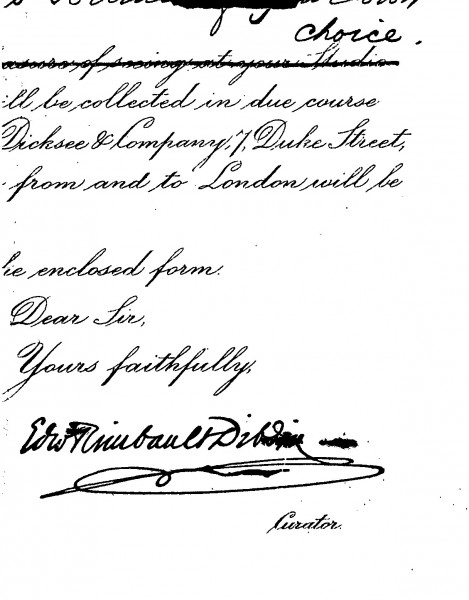 choice.
of seeing at your Studio
ill be collected in due course
Dicksee & Company, 7, Duke Street,
from and to London will be
he enclosed form.
Dear Sir,
Yours faithfully,
Edw Rimbault Dibdin
Curator.